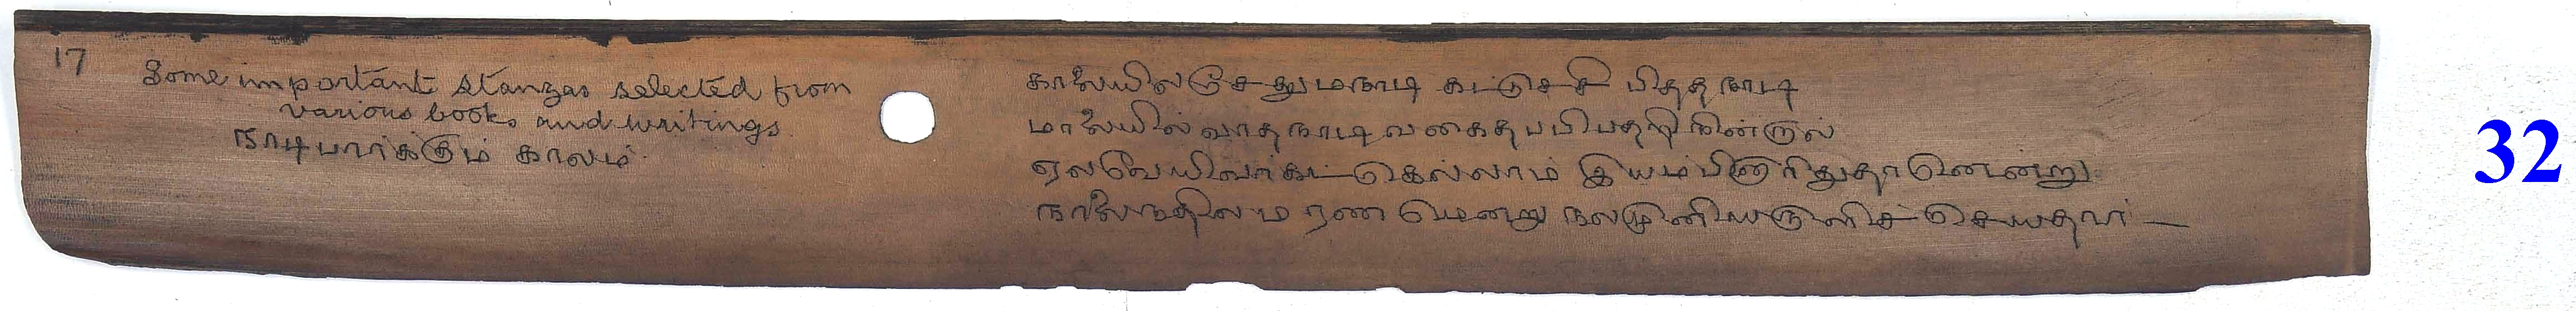 17
Some important stanzas selected from
various books and writings
நாடி பார்க்கும் காலம்
காலையில சேதுமநாடி கடடுச்சி பிதத நாடி
மாலையில் வாத நாடி வகைத
நின்றுல்
கெல்லாம் இயம்பினாரிதுதானென்று
மரண மென்று நலமுனியருளிச் செயதவா —
32